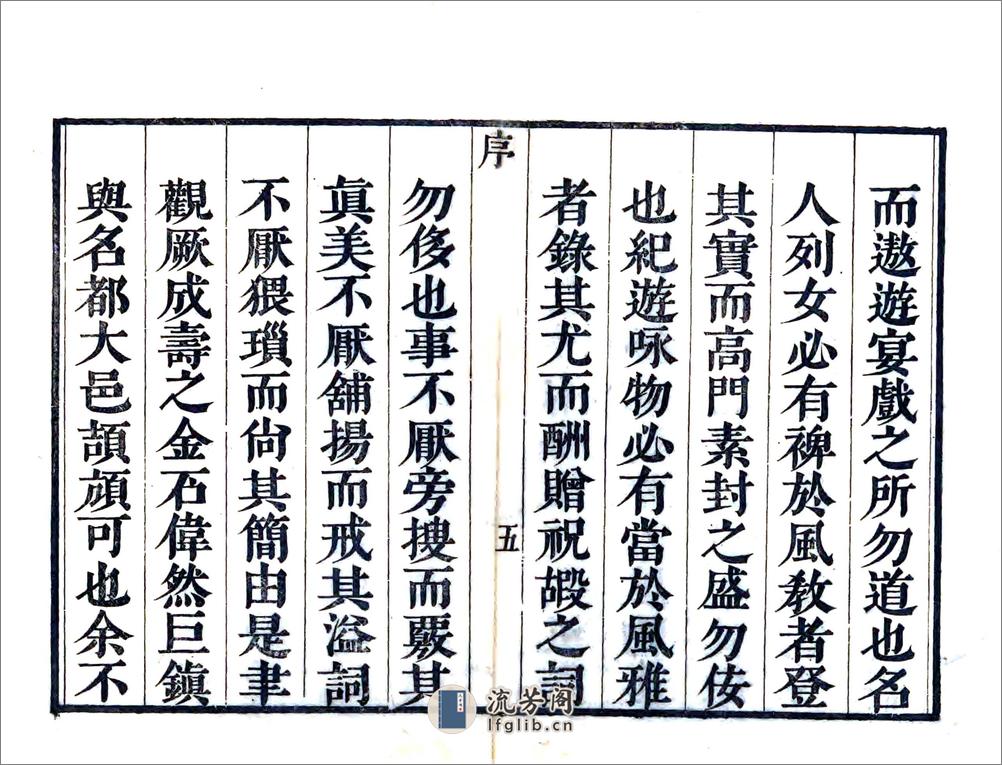 而遨遊宴戲之所勿道也名
人列女必有裨於風敎者登
其實而高門素封之盛勿侫
也紀遊咏物必有當於風雅
者錄其尤而酬贈祝嘏之詞
序
五
勿侈也事不厭旁搜而覈其
眞美不厭舖揚而戒其溢詞
不厭猥瑣而尙其簡由是聿
觀厥成壽之金石偉然巨鎭
與名都大邑頡頏可也余不
流芳阁
lfglib.cn